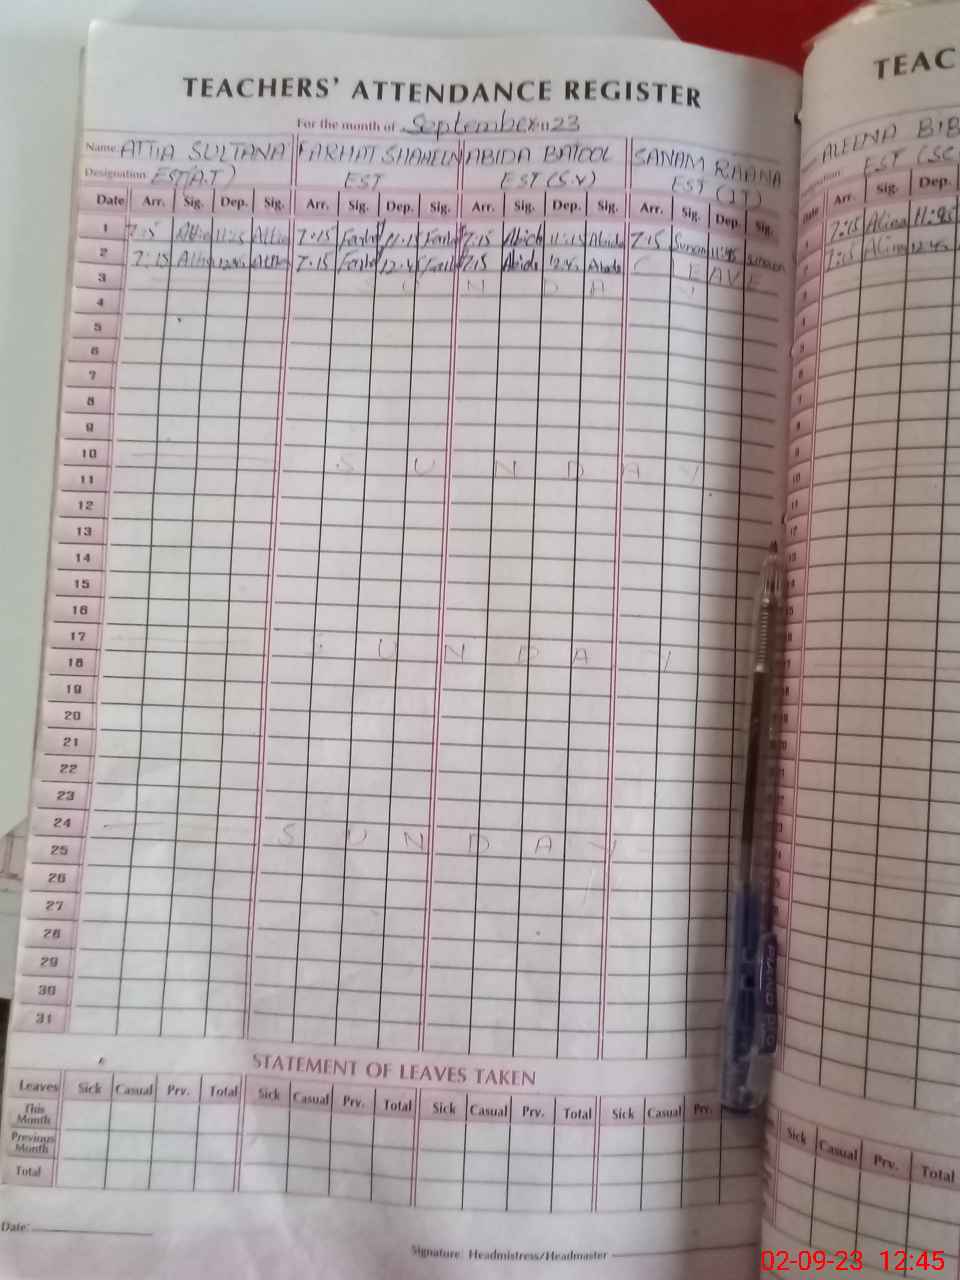 TEACHERS' ATTENDANCE REGISTER
For the month of September 2023
Name: ATTIA SULTANA FARHAT SHAHEEN ABIDA BATOOL SANAM RAANA
Designation: EST(A.T) EST EST (S.V) EST (IT)
Date Arr. Sig. Dep. Sig. Arr. Sig. Dep. Sig. Arr. Sig. Dep. Sig. Arr. Sig. Dep. Sig.
1 7:15 Attia 11:15 Attia 7.15 11:15 7.15 Abida 11:15 Abida 7.15 Sanam 11:45 Sanam
2 7:15 Attia 12:45 Attia 7.15 12.45 7.15 Abida 12.45 Abida LEAVE
3 SUNDAY
4
5
6
7
8
9
10 SUNDAY
11
12
13
14
15
16
17 SUNDAY
18
19
20
21
22
23
24 SUNDAY
25
26
27
28
29
30
31
STATEMENT OF LEAVES TAKEN
Leaves Sick Casual Prv. Total Sick Casual Prv. Total Sick Casual Prv. Total Sick Casual Prv.
This Month
Previous Month
Total
Date:
Signature: Headmistress/Headmaster
TEAC
ALEENA BIB
EST (SC
Date Arr. Sig. Dep.
7:15 Alina 11:45
7:15 Alina 12:45
Sick Casual Prv. Total
PIANO
02-09-23 12:45